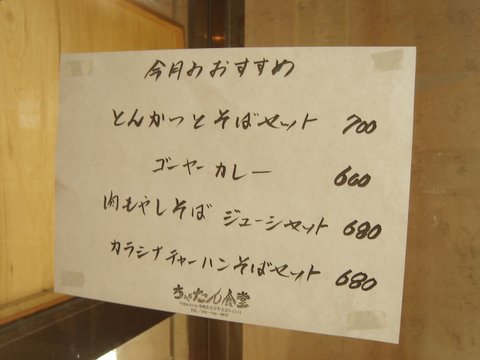 今月のおすすめ
とんかつとそばセット 700
ゴーヤーカレー 600
肉もやしそば ジューシーセット 680
カラシナチャーハンそばセット 680